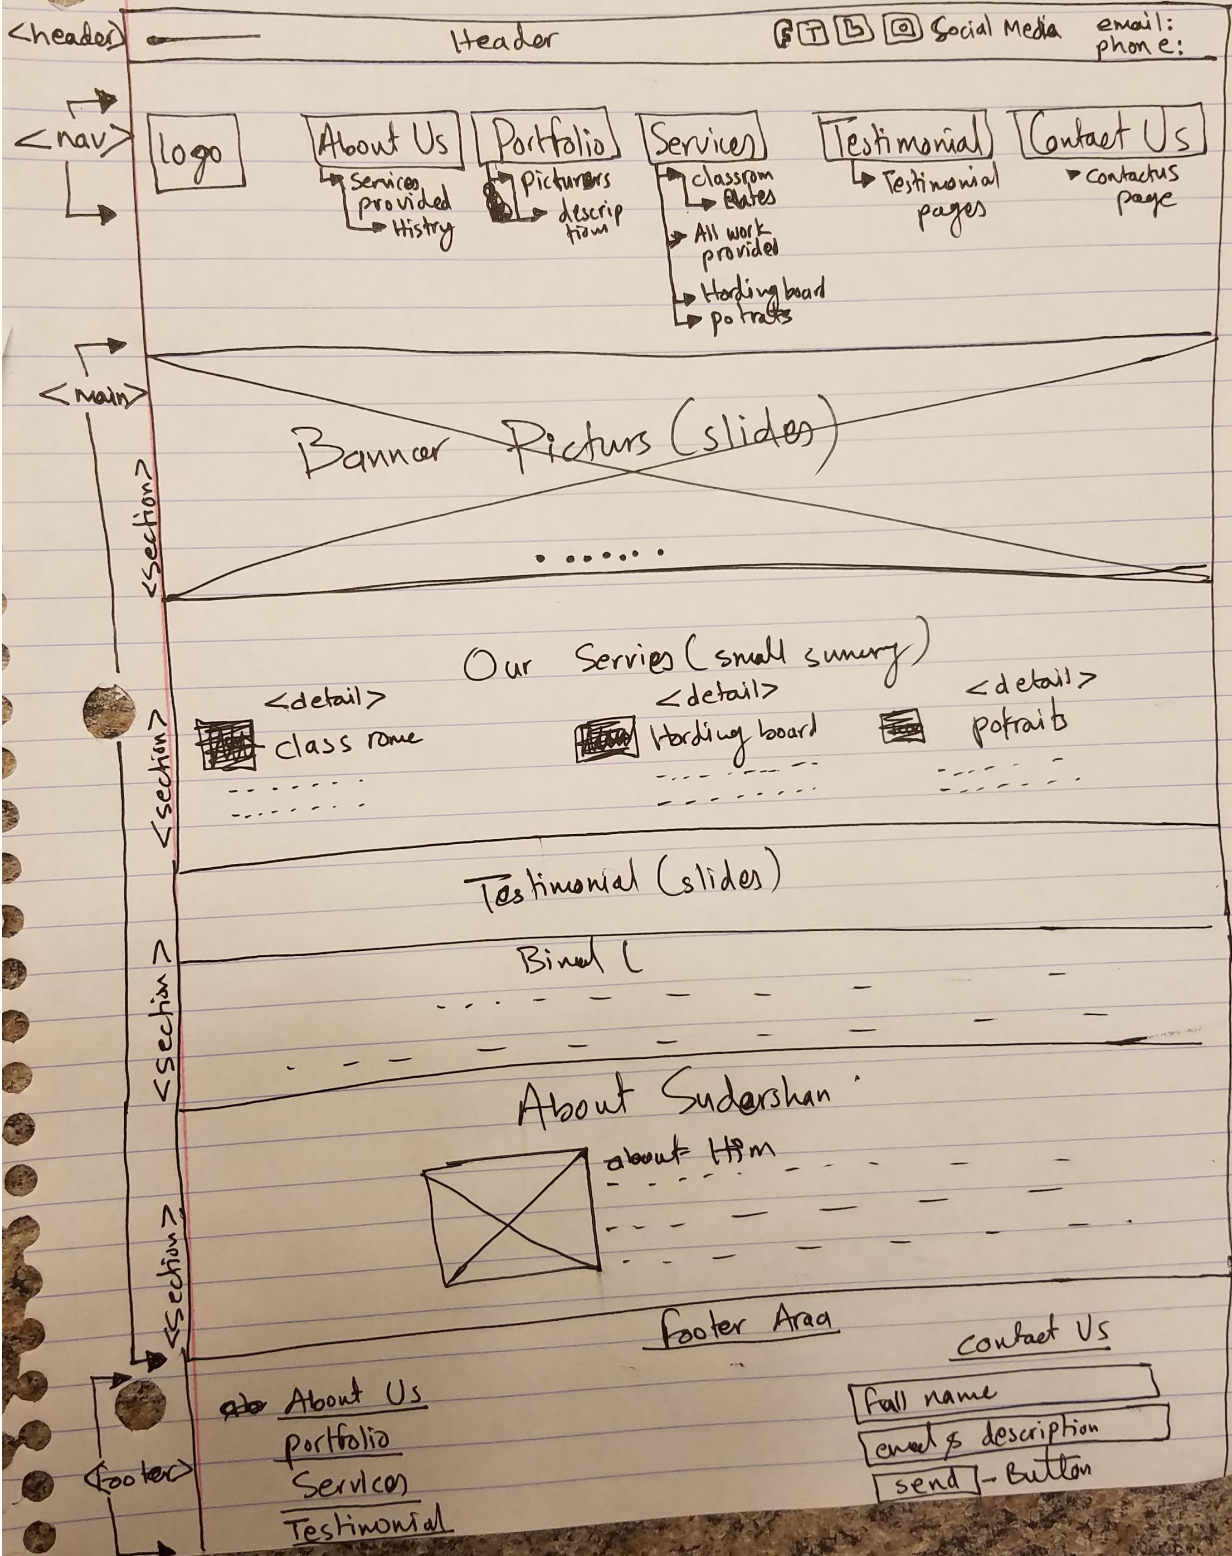 <header>
Header
F T b Social Media
email:
phone:
<nav>
logo
About Us
Services
provided
Histry
Portfolio
picturers
descrip
tion
Services
classrom
plates
All work
provided
Hording board
potraits
Testimonial
Testimonial
pages
Contact Us
contactus
page
<main>
<section>
Banner Picturs (slides)
<section>
Our Servies (small sumery)
<detail>
class rome
<detail>
Hording board
<detail>
potraits
Testimonial (slides)
<section>
<section>
About Sudarshan
about Him
Footer Area
<footer>
About Us
portfolio
Services
Testimonial
Contact Us
Full name
email & description
send - Button